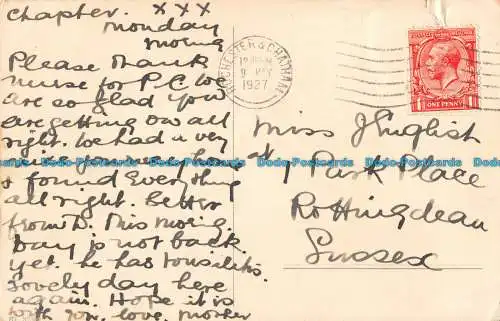 Chapter. XXX
Monday
moring
Please thank
nurse for P.C. We
are so glad you
are getting on all
right. We had a very
journey home
& found everything
all right. Letter
from D. this moring
Ray is not back
yet. he has tonsilitis.
Lovely day here
again. Hope it is
with you, love, Morker
ROCHESTER & CHATHAM
9 MY
1927
ONE PENNY
Miss J English
7 Park Place
Rottingdean
Sussex
Dodo-Postcards Dodo-Postcards Dodo-Postcards Dodo-Postcards Dodo-Postcards